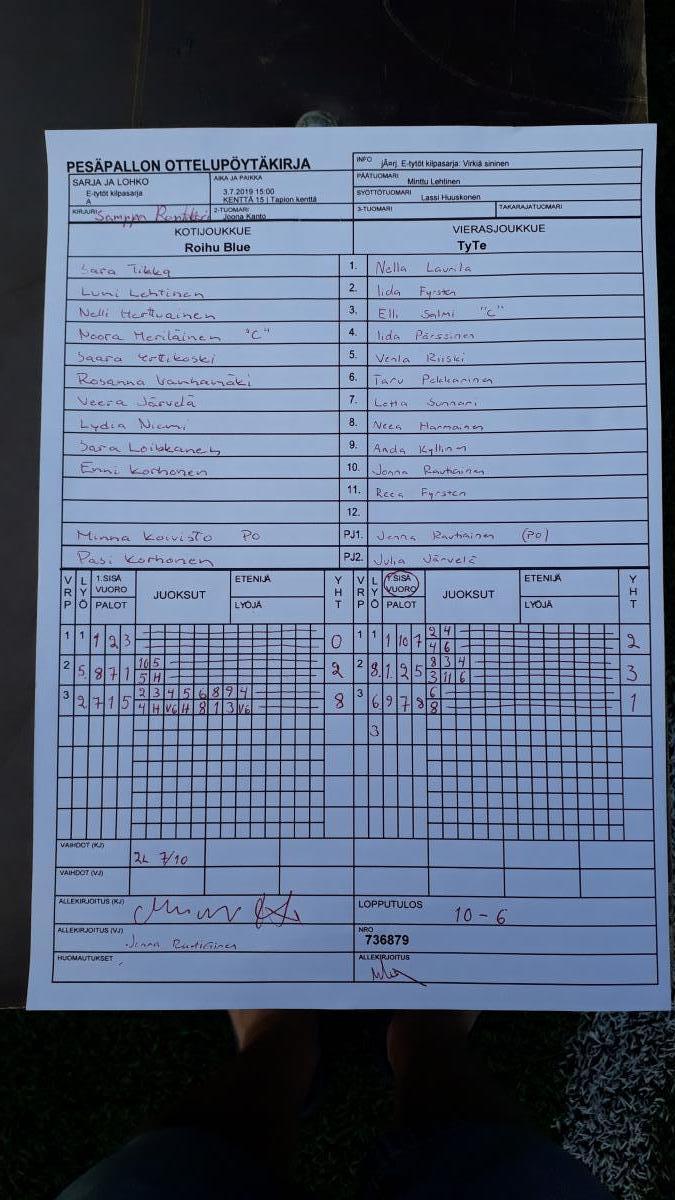 PESÄPALLON OTTELUPÖYTÄKIRJA
INFO jÃ¤rj. E-tytöt kilpasarja: Virkiä sininen
SARJA JA LOHKO E-tytöt kilpasarja A
AIKA JA PAIKKA 3.7.2019 15:00 KENTTÄ 15 | Tapion kenttä
PÄÄTUOMARI Minttu Lehtinen
SYÖTTÖTUOMARI Lassi Huuskonen
KIRJURI Samppa
2-TUOMARI Joona Kanto
3-TUOMARI TAKARAJATUOMARI
KOTIJOUKKUE Roihu Blue
VIERASJOUKKUE TyTe
Sara Tikka 1. Nella Laurila
Lumi Lehtinen 2. Iida Fyrsten
Nelli Herttuainen 3. Elli Salmi "C"
Noora Meriläinen "C" 4. Iida Pärssinen
Saara Erttikoski 5. Venla Riiski
Rosanna Vanhamäki 6. Taru Pekkarinen
Veera Järvelä 7. Lotta Sunnari
Lydia Niemi 8. Neea Harmainen
Sara Loikkanen 9. Anda Kyllinen
Enni Korhonen 10. Jonna Rautiainen
11. Reea Fyrsten
12.
Minna Koivisto PO PJ1. Jenna Rautiainen (PO)
Pasi Korhonen PJ2. Julia Järvelä
VRP LYÖ 1.SISÄ VUORO PALOT JUOKSUT ETENIJÄ LYÖJÄ YHT VRP LYÖ 1.SISÄ VUORO PALOT JUOKSUT ETENIJÄ LYÖJÄ YHT
1 1 1 2 3 0 1 1 1 10 7 2 4 2
4 6
2 5 8 7 1 10 5 2 2 8 1 2 5 8 3 4 3
5 H 3 11 6
3 2 7 1 5 2 3 4 5 6 8 9 4 8 3 6 9 7 8 6 1
4 H V6 H 8 1 3 V6 8
3
VAIHDOT (KJ) 2L 7/10
VAIHDOT (VJ)
ALLEKIRJOITUS (KJ)
LOPPUTULOS 10 - 6
ALLEKIRJOITUS (VJ) Jenna Rautiainen
NRO 736879
HUOMAUTUKSET
ALLEKIRJOITUS